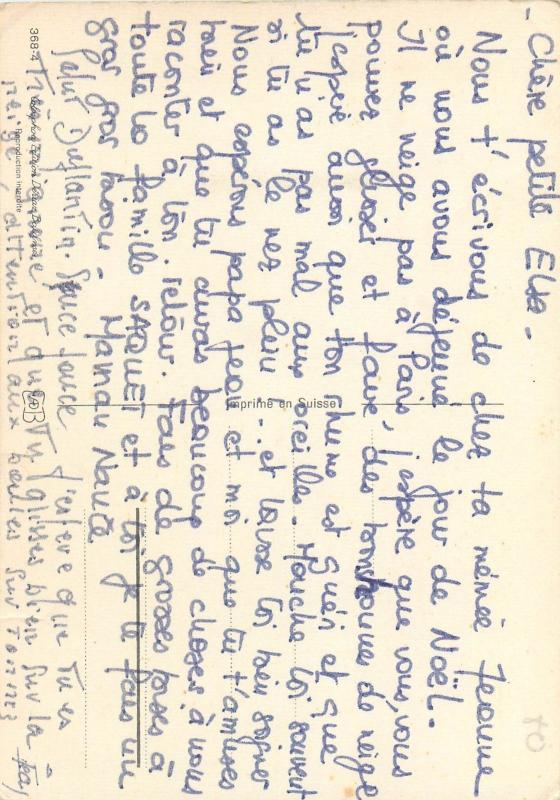 - Chère petite Elsa -
Nous t'écrivons de chez ta mémée Jeanne
où nous avons déjeuné le jour de Noël.
Il ne neige pas à Paris, j'espère que vous, vous
pouvez glisser et faire des bonshommes de neige
J'espère aussi que ton rhume est guéri et que
tu n'as pas mal aux oreilles. Mouche toi souvent
si tu as le nez plein.. et laisse toi bien soigner
Nous espérons papa Jean et moi que tu t'amuses
bien et que tu auras beaucoup de choses à nous
raconter à ton retour. Fais de grosses bises à
toute la famille SAQUET et à toi je te fais un
gros gros bisou - Maman
Salut J'espère que tu es
et que tu glisses bien sur la
neige, attention aux sur
368-4
Reproduction interdite
Imprimé en Suisse
70